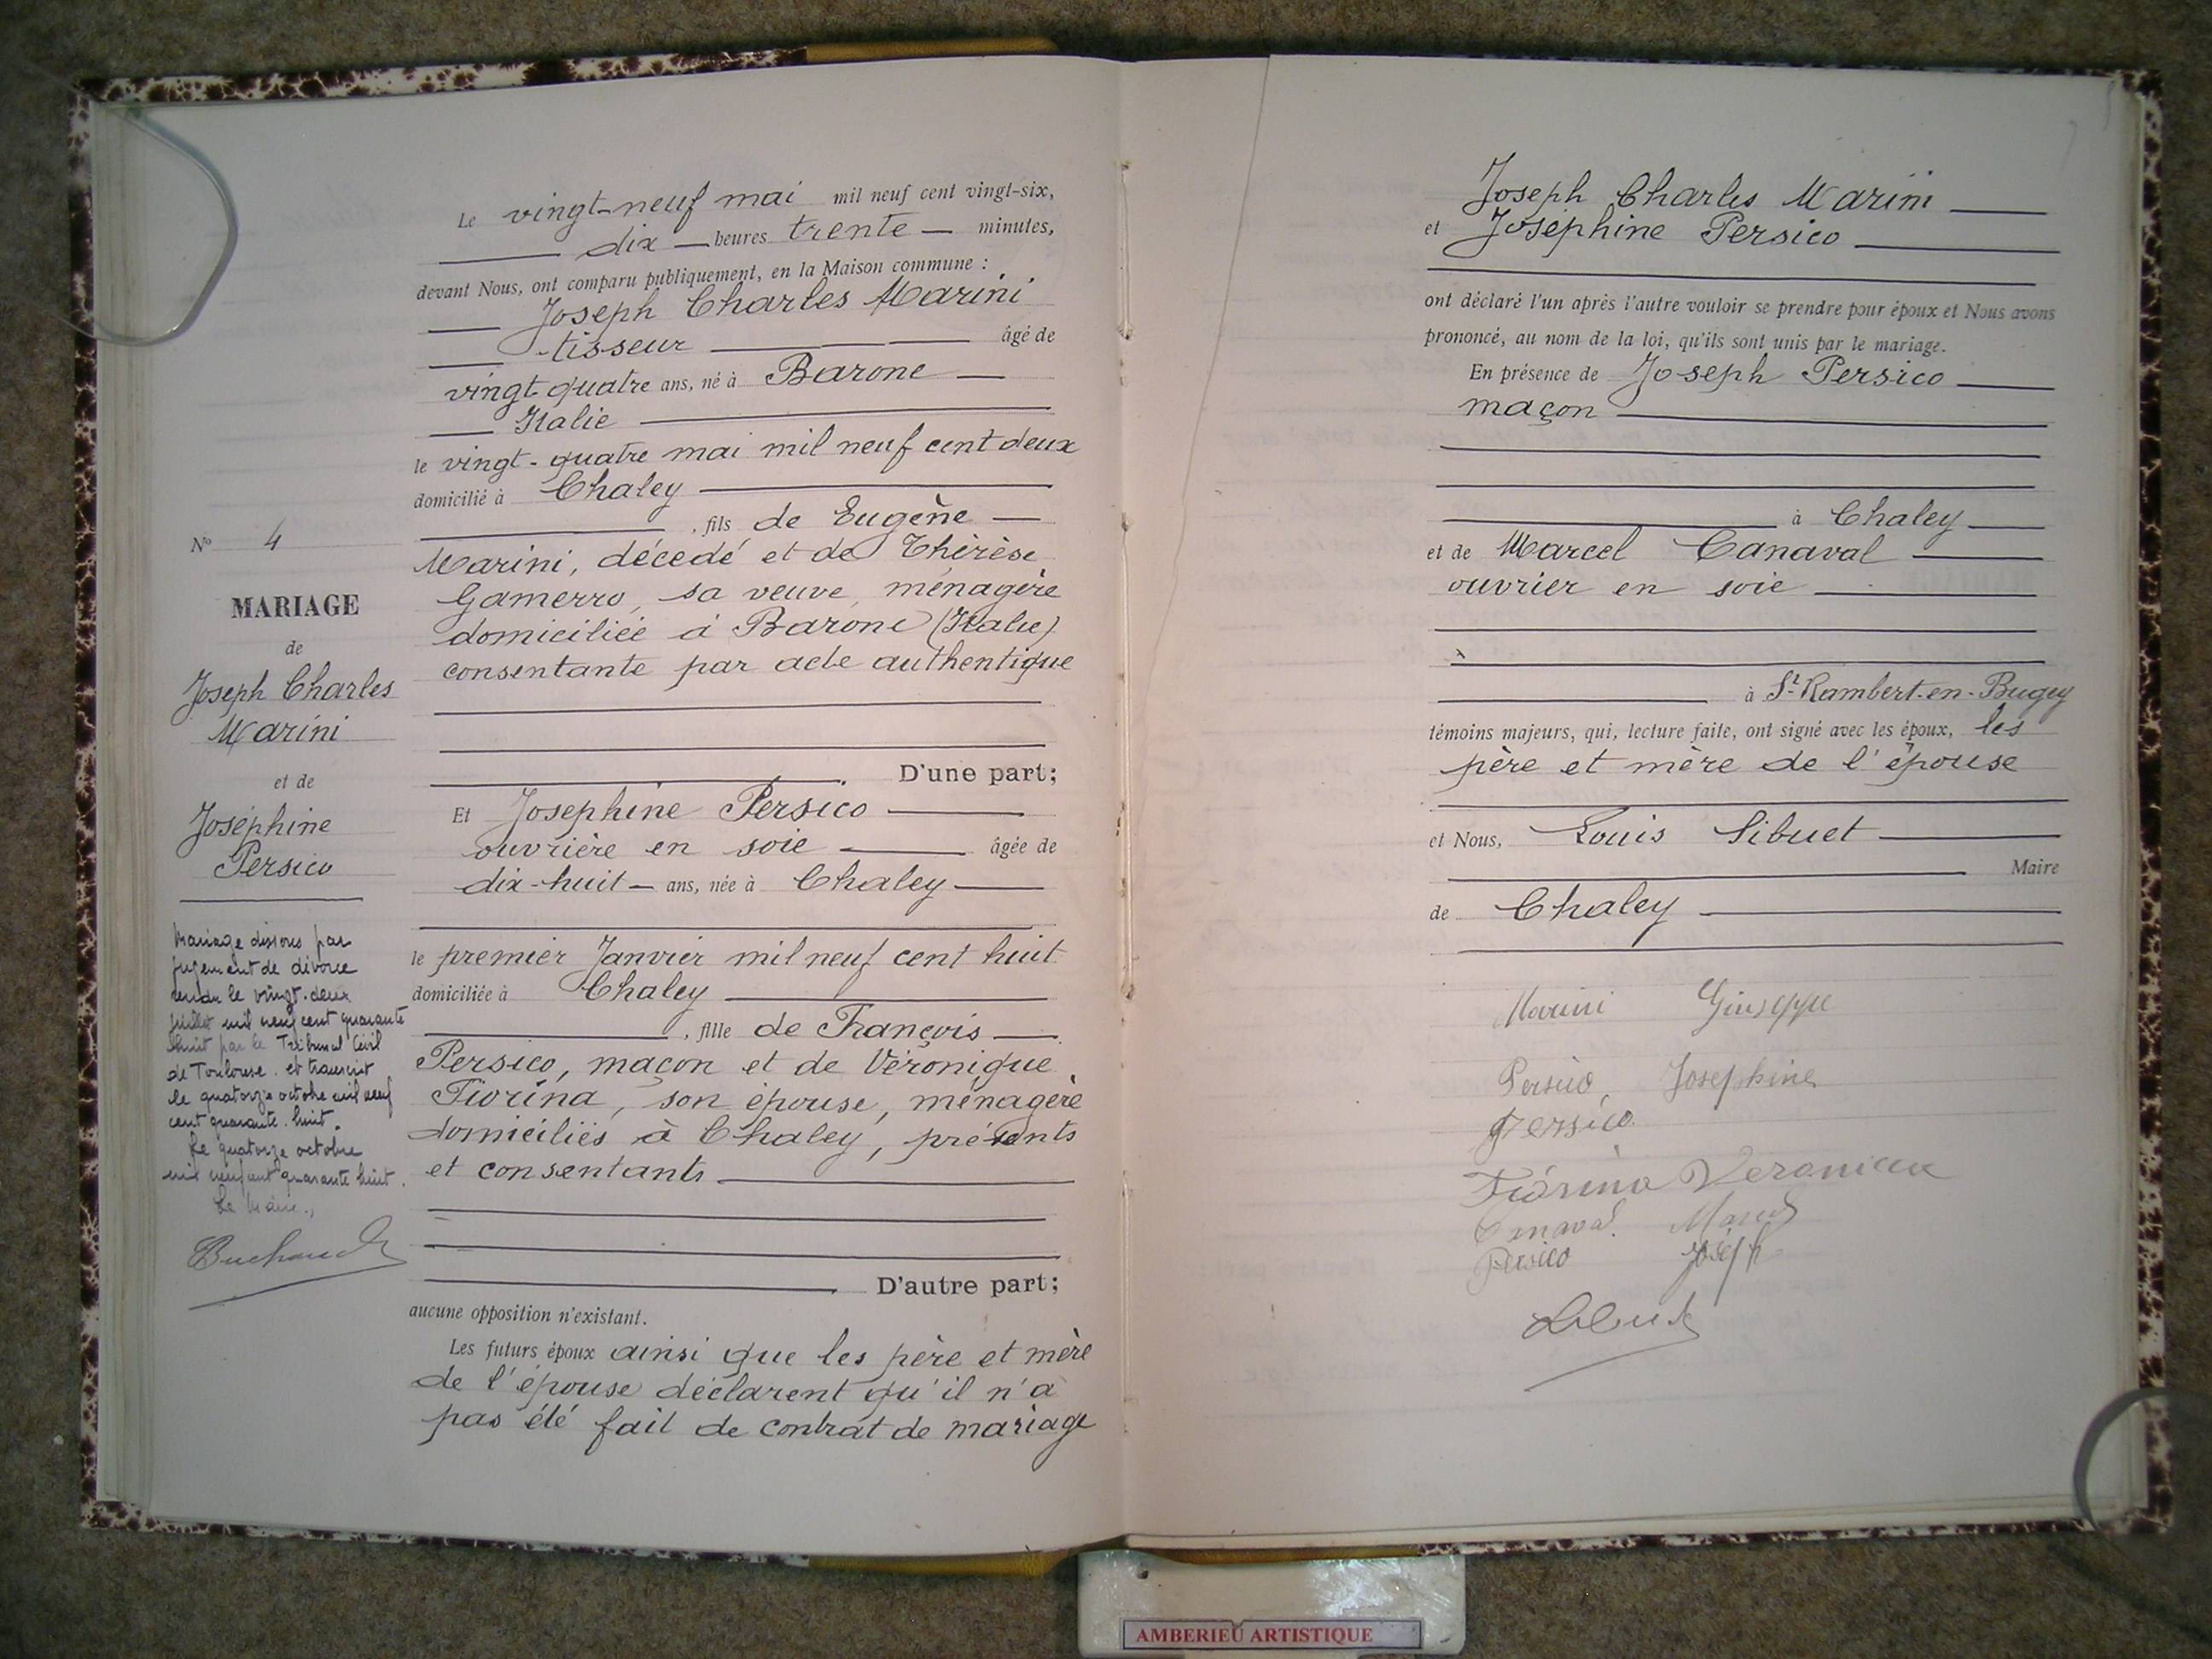 N° 4
MARIAGE
de
Joseph Charles
Marini
et de
Joséphine
Persico
Mariage dissous par
jugement de divorce
rendu le vingt-deux
juillet mil neuf cent quarante
huit par le Tribunal Civil
de Toulouse et transcrit
le quatorze octobre mil neuf
cent quarante huit.
Le quatorze octobre
mil neuf cent quarante huit.
Le Maire,
Le vingt-neuf mai mil neuf cent vingt-six,
dix heures trente minutes,
devant Nous, ont comparu publiquement, en la Maison commune :
Joseph Charles Marini
tisseur âgé de
vingt quatre ans, né à Barone
Italie
le vingt-quatre mai mil neuf cent deux
domicilié à Chaley
, fils de Eugène
Marini, décedé et de Thérèse
Gamerro, sa veuve, ménagère
domiciliée à Barone (Italie)
consentante par acte authentique
D'une part;
Et Josephine Persico
ouvrière en soie âgée de
dix-huit ans, née à Chaley
le premier Janvier mil neuf cent huit
domiciliée à Chaley
, fille de François
Persico, maçon et de Véronique
Fiorina, son épouse, ménagère
domiciliés à Chaley, présents
et consentants
D'autre part;
aucune opposition n'existant.
Les futurs époux ainsi que les père et mère
de l'épouse déclarent qu'il n'a
pas été fait de contrat de mariage
Joseph Charles Marini
et Joséphine Persico
ont déclaré l'un après l'autre vouloir se prendre pour époux et Nous avons
prononcé, au nom de la loi, qu'ils sont unis par le mariage.
En présence de Joseph Persico
maçon
à Chaley
et de Marcel Canaval
ouvrier en soie
à St-Rambert-en-Bugey
témoins majeurs, qui, lecture faite, ont signé avec les époux, les
père et mère de l'épouse
et Nous, Louis Sibuet
Maire
de Chaley
Marini Giuseppe
Persico, Josephine
Persico
Fiorina
Marcel
Persico Joseph
AMBERIEU ARTISTIQUE